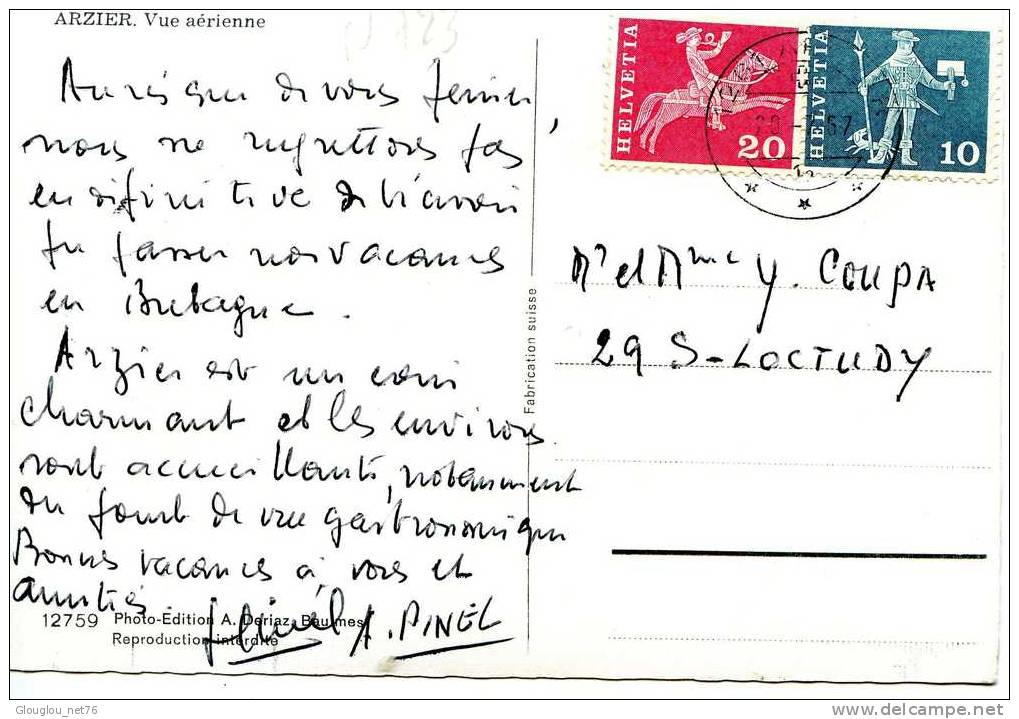 ARZIER. Vue aérienne
nous ne regrettons pas
en définitive de n'avoir
pu passer nos vacances
en Bretagne.
Arzier est un coin
charmant et les environs
sont accueillants, notamment
du point de vue gastronomique
Bonnes vacances à vous et
amitiés.
A. PINEL
12759 Photo-Edition A. Dériaz, Baulmes
Reproduction interdite
Fabrication suisse
HELVETIA
20
HELVETIA
10
Mr et Mme Y. COUPA
29 S-LOCTUDY
Glouglou_net76
delcampe.net